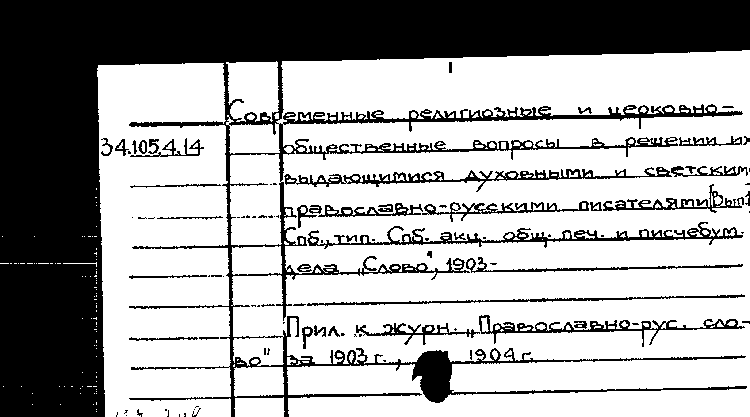 Современные религиозные и церковно-
34.105.4.14 общественные вопросы в решении их
выдающимися духовными и светскими
православно-русскими писателями [Вып.1
Спб., тип. Спб. акц. общ. печ. и писчебум.
дела "Слово", 1903-
Прил. к журн. "Православно-рус. сло-
во" за 1903 г., 1904 г.